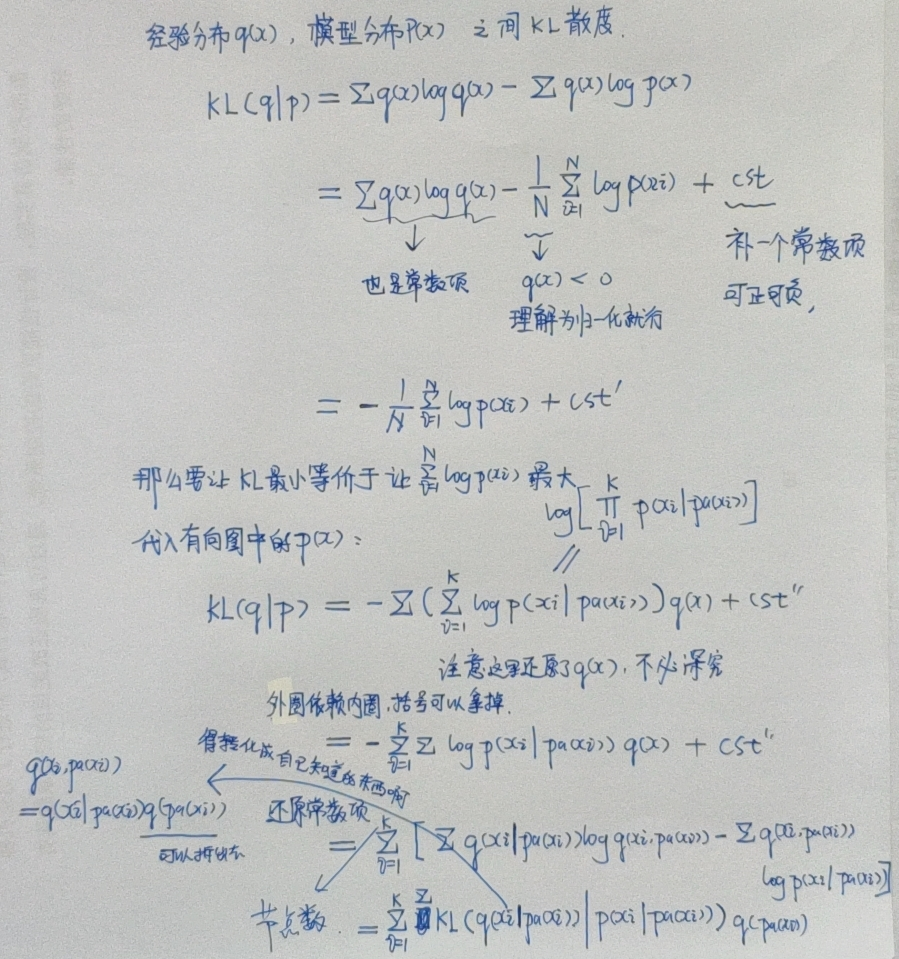 经验分布q(x), 模型分布P(x) 之间KL散度.
KL(q|p) = Σq(x)logq(x) - Σ q(x)log p(x)
= Σq(x)logq(x) - 1/N Σ_{i=1}^{N} log p(xi) + cst
也是常数项
q(x) < 0
理解为归一化就行
补一个常数项
可正可负,
= - 1/N Σ_{i=1}^{N} log p(xi) + cst'
那么要让KL最小等价于让 Σ_{i=1}^{N} log p(xi) 最大
log[ Π_{i=1}^{K} p(xi|pa(xi))]
代入有向图中的p(x):
//
KL(q|p) = -Σ( Σ_{i=1}^{K} log p(xi|pa(xi)))q(x) + cst''
注意这里还原了q(x), 不必深究
外圈依赖内圈, 括号可以拿掉.
= - Σ_{i=1}^{K} Σ log p(xi|pa(xi)) q(x) + cst''
得转化成自己知道的东西啊
q(xi,pa(xi))
=q(xi|pa(xi))q(pa(xi))
可以拆
还原常数项
= Σ_{i=1}^{K} [ Σ q(xi|pa(xi))log q(xi,pa(xi)) - Σ q(xi,pa(xi))
log p(xi|pa(xi))]
节点数.
= Σ_{i=1}^{K} Σ KL(q(xi|pa(xi))|p(xi|pa(xi))) q(pa(xi))